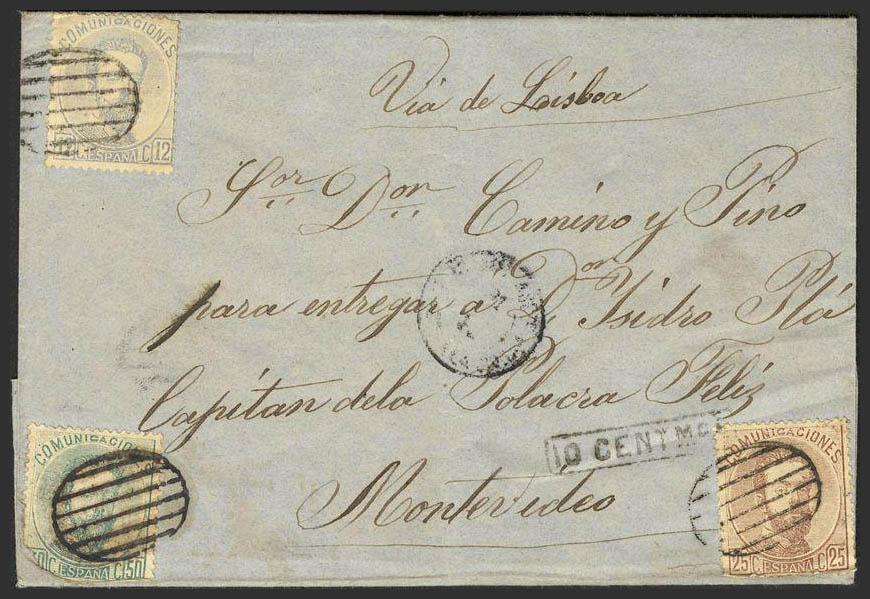 COMUNICACIONES
12 C. ESPAÑA C 12
Via de Loisboa
Sor. Don Camino y Pino
para entregar a Dn. Isidro Plá
Capitan dela Polacra Feliz
10 CENTMOS
Montevideo
COMUNICACIO
50 C. ESPAÑA C. 50
COMUNICACIONES
25 C. ESPAÑA C. 25